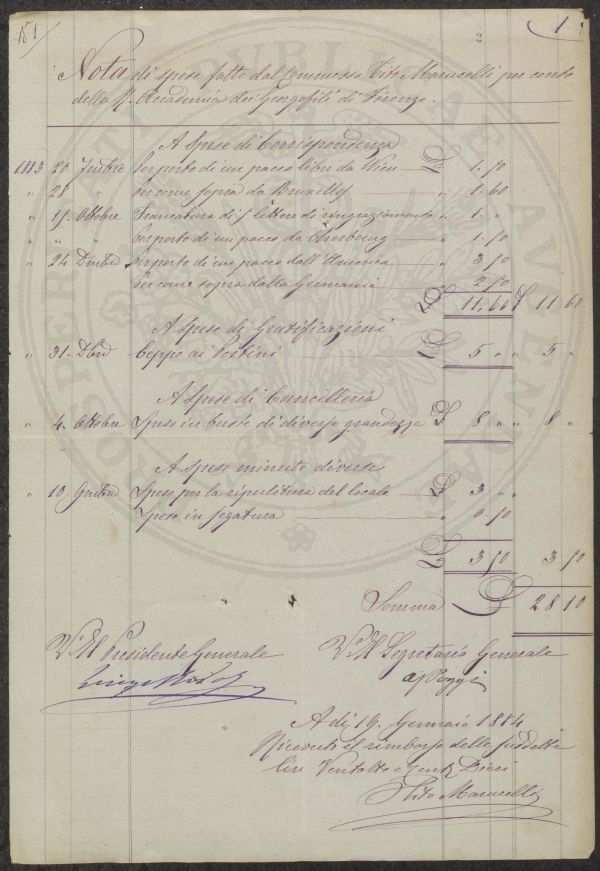 N° 1
1
2
Nota di spese fatte dal Commesso Tito Marucelli per conto
della R. Accademia dei Georgofili di Firenze.
A Spese di Corrispondenza
1883 20 7mbre Per porto di un pacco libri da Wien £ 1. 50
" 28 " Per come sopra da Bruxelles " 1. 60
" 15. Ottobre Francatura di 5 lettere di ringraziamento " 1. "
" " " Per porto di un pacco da Cherbourg " 1. 50
" 24 Per porto di un pacco dall'America " 3 50
Per come sopra dalla Germania " 2. 50
£ 11, 60 £ 11 60
A Spese di Gratificazioni
" 31. Xbre Ceppo ai Postini £ 5 " " 5 "
A Spese di Cancelleria
" 4. Ottobre Spese in buste di diverse grandezze £ 8 " " 8 "
A spese minute diverse
" 10. 9mbre Spese per la ripulitura del locale £ 3 " "
Spese in segatura " 0. 50
£ 3 50 3 50
Somma £ 28 10
V° Il Presidente Generale
V° Il Segretario Generale
A Poggi
A dì 19. Gennaio 1884
Ricevuti il rimborso delle suddette
lire Ventotto e Cent. Dieci
Tito Marucelli